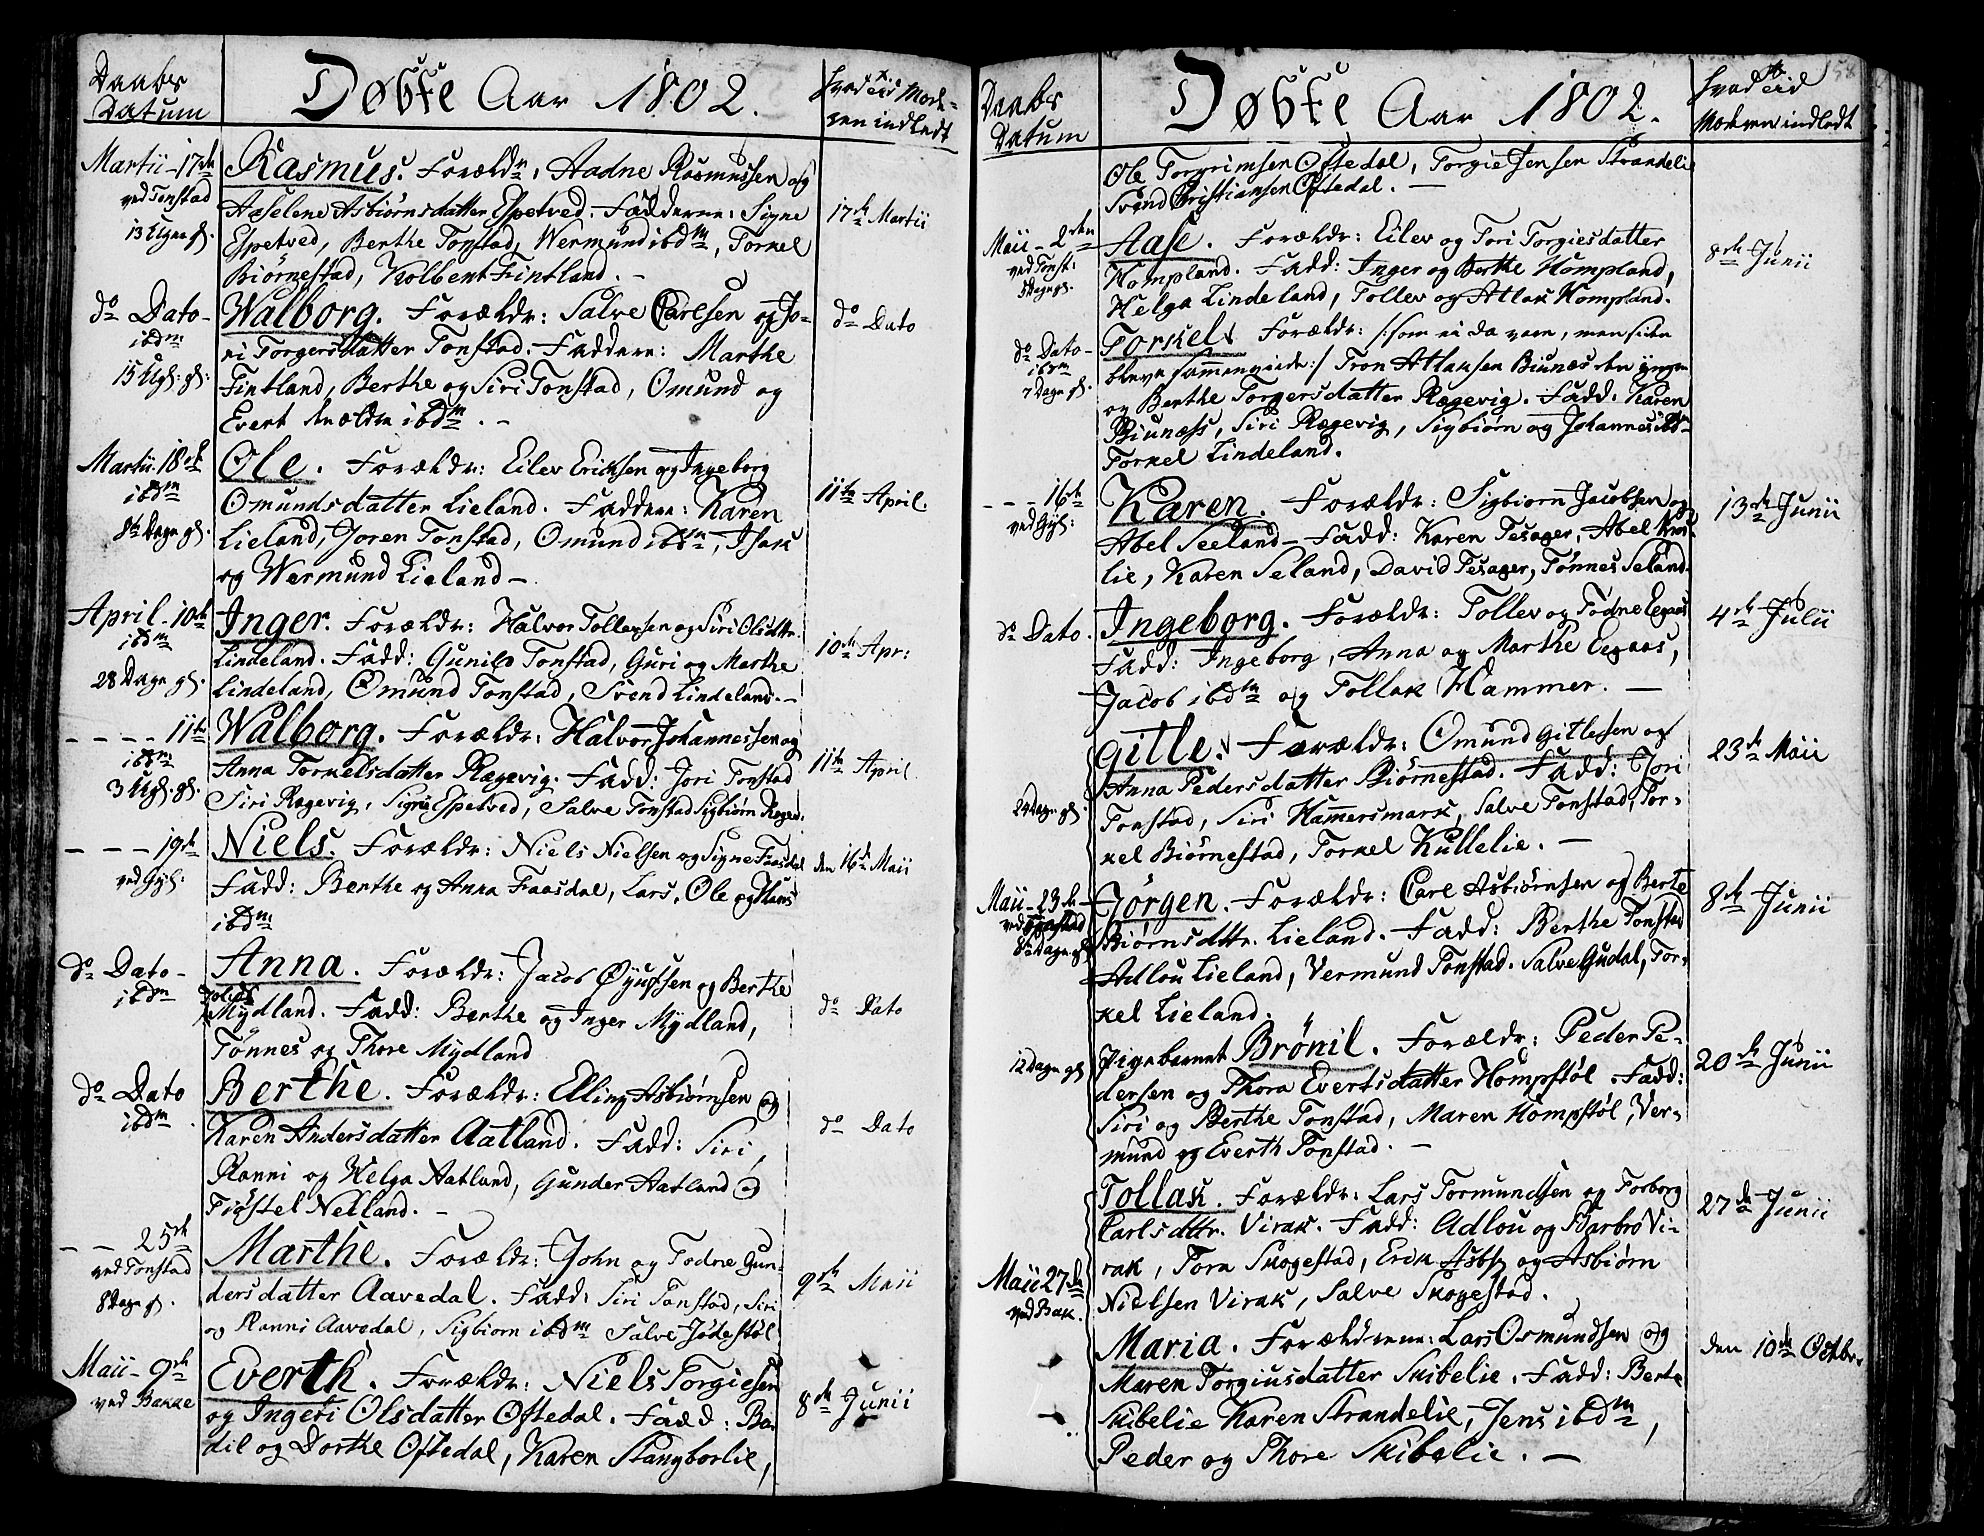 Daabs
Datum
Døbte Aar 1802.
Hvad tid Mode-
ren indledt
Martii 17de
ved Tonstad
13 Uger gl.
Rasmus. Forældr: Aadne Rasmussen og
Aaselene Asbiørnsdatter Espetved. Fadderne: Signe
Espetved, Berthe Tonstad, Wermund ibdm, Torkel
Biørnestad, Kolbent Fintland. -
17de Martii
do Dato -
ibdm
15 Ugl: gl:
Walborg. Forældr: Salve Carlsen og Jo-
ri Torgersdatter Tonstad. Faddere: Marthe
Fintland, Berthe og Siri Tonstad, Omund og
Evert Knælden ibdm. -
do Dato
Martii 18de
ibdm
8te Dage gl.
Ole. Forældr: Eilev Eriksen og Ingeborg
Omundsdatter Lieland. Faddere: Karen
Lieland, Joren Tonstad, Omund ibdm, Isak
og Wermund Lieland -
11te April.
April 10de
ibdm
28 Dage gl.
Inger. Forældr: Halvor Tollevsen og Siri Olsdttr.
Lindeland. Fadd: Gunild Tonstad, Guri og Marthe
Lindeland, Omund Tonstad, Svend Lindeland. -
10de Apr:
- - - - 11te
ibdm
3 Ugl. gl.
Walborg. Forældr: Halvor Johannessen og
Anna Torkelsdatter Rægevig. Fadd: Jori Tonstad
Siri Rægevig, Signe Espetved, Salve Tonstad Sigbiørn Regev:
11te April
- - - 19de
ved Gyl:
Niels. Forældr: Niels Nielsen og Signe Faasdal
Fadd: Berthe og Anna Faasdal, Lars, Ole og Hans
ibdm
den 16de Maii
do Dato -
ibdm
Anna. Forældr: Jacob Øyufsen og Berthe
Mydland. Fadd: Berthe og Inger Mydland,
Tønnes og Thore Mydland
do Dato
do Dato
ibdm
Berthe. Forældr: Elling Asbiørnsen og
Karen Andersdatter Aatland. Fadd: Siri,
Ranni og Helga Aatland, Gunder Aatland og
Tiøstel Netland. -
do Dato
- - 25de
ved Tonstad
8 Dage gl.
Marthe. Forældr: John og Todne Gun-
dersdatter Aavedal. Fadd: Siri Tonstad, Siri
og Ranni Aavedal, Sigbiorn ibdm Salve Jødestøl
9de Maii
Maii - 9de
ved Bakke
Everth. Forældr: Niels Torgiesen
og Ingeri Olsdatter Øftedal. Fadd: Bo-
dil og Dorthe Øftedal, Karen Stangborlie,
8de Junii
Daabs
Datum
Døbte Aar 1802.
Hvad tid
Moderen indledt
158
Ole Torgrimsen Øftedal, Torgie Jensen Strandelie
Svend Christiansen Øftedal. -
Maii - 2den
ved Tonst:
8 Dage gl.
Aase. Forældr: Eilev og Tori Torgiesdatter
Hompland. Fadd: Inger og Berthe Hompland,
Helga Lindeland, Tollev og Atlak Hompland.
8de Junii
do Dato -
ibdm
7 Dage gl.
Torkel. Forældr: /: som ei da vare, men siden
bleve sammenviede :/ Tron Atlaksen Biunæs den yngre
og Berthe Torgersdatter Rægevig. Fadd: Karen
Biunæss, Siri Rægevig, Sigbiørn og Johannes ibdm
Torkel Lindeland.
- - 16de
ved Gyl:
Karen. Forældr: Sigbiorn Jacobsen og
Abel Seeland - Fadd: Karen Tesager, Abel
lie, Karen Seland, David Tesager, Tønnes Seland.
13de Junii
do Dato.
Ingeborg. Forældr: Tollev og Todne Eegaas
Fadd: Ingeborg, Anna og Marthe Eegaas,
Jacob ibdm og Tollak Hammer. -
4de Julii
24 Dage gl.
Gitle. Forældr: Omund Gitlesen og
Anna Pedersdatter Biørnestad. Fadd: Jori
Tonstad, Siri Hamersmark, Salve Tonstad, Tor-
kel Biørnestad, Torkel Kullelie. -
23de Maii
Maii - 23de
ved Tonstad
8te Dage gl
Jørgen. Forældr: Carl Asbiørnsen og Berte
Biørnsdttr. Lieland. Fadd: Berthe Tonstad
Adlou Lieland, Vermund Tonstad. Salve Gudal, Tor-
kel Lieland.
8de Junii
12 Dage gl
Pigebarnet Brönil. Forældr: Peder Pe-
dersen og Thora Evertsdatter Hompstøl. Fadd:
Siri og Berthe Tonstad, Maren Hompstøl, Ver-
mund og Everth Tonstad. -
20de Junii
Tollak. Forældr: Lars Tormundsen og Torborg
Carlsdttr. Virak. Fadd: Adlou og Barbro Vi-
rak, Tora Skogestad, Erik Asbs og Asbiørn
Nielsen Virak, Salve Skogestad.
27de Junii
Maii 27de
ved Bak.
Maria. Forældrene: Lars Osmundsen og
Maren Torgiusdatter Skibelie. Fadd: Berte
Skibelie Karen Strandelie, Jens ibdm,
Peder og Thore Skibelie. -
den 10de Octbr.